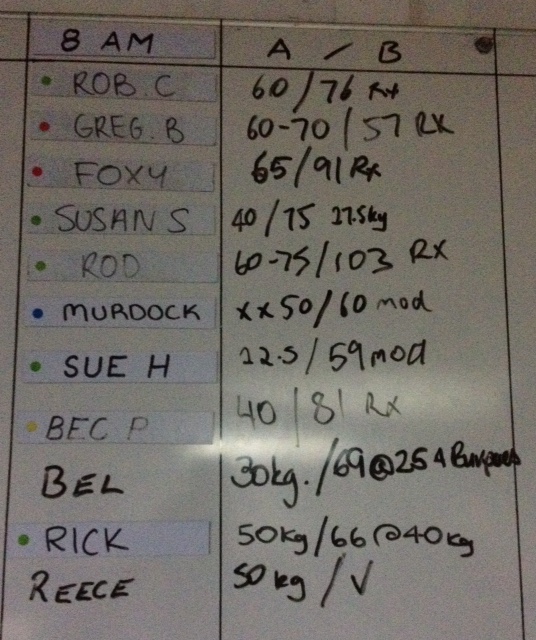 8 AM A / B
ROB. C 60/76 Rx
GREG. B 60-70/57 RX
FOXY 65/91 Rx
SUSAN S 40/75 27.5kg
ROD 60-75/103 RX
MURDOCK xx50/60 mod
SUE H 22.5/59 mod
BEC P 40/81 Rx
BEL 30kg./69@25 4 Burpees
RICK 50kg/66@40kg
REECE 50kg/√